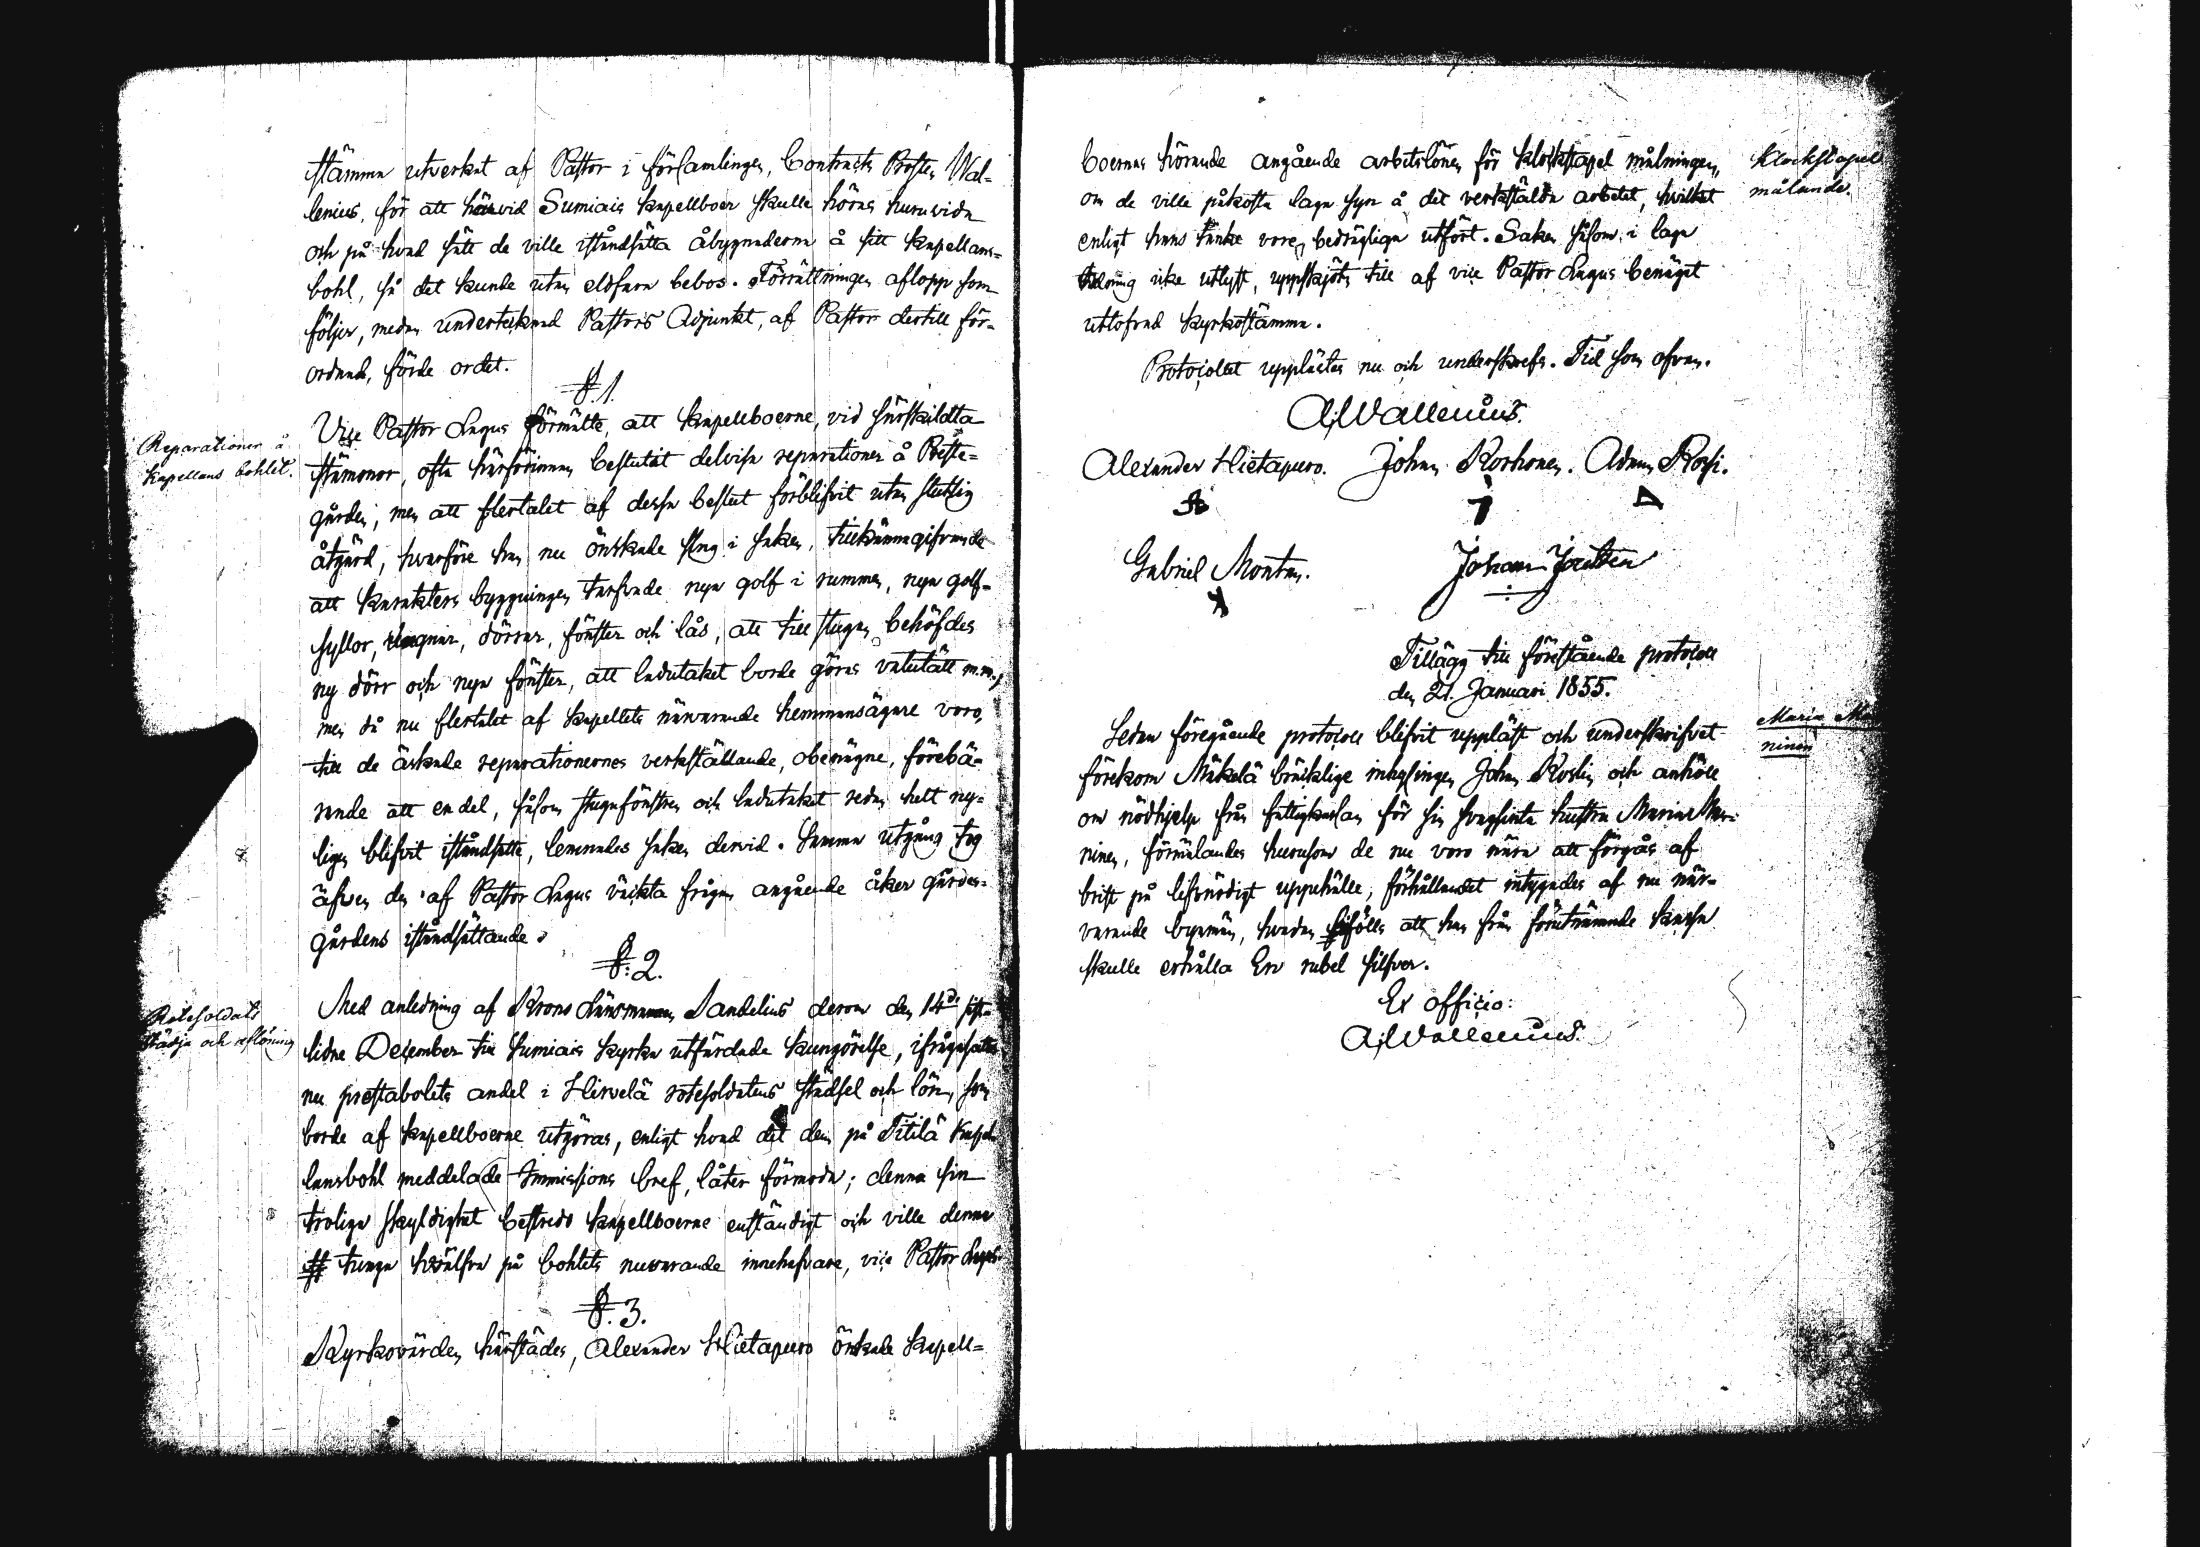 stämma utverkat af Pastor i församlingen, Contracts Prosten Wal-
lenius, för att härvid Sumiais kapellboer skulle höras huruvida
och på hvad sätt de ville iståndsätta åbyggnaderna å sitt kapellans-
bohl, så det kunde utan eldfara bebos. Förrättningen aflopp som
följer, medan undertecknad Pastors Adjunkt, af Pastor dertill för-
ordnad, förde ordet.
§. 1.
Reparationer å
kapellans bohlet.
Vice Pastor Lagus förmälte, att kapellboerne, vid särskildta
stämmor, ofta härförinnan beslutat delvisa reparationer å Preste-
gården, men att flertalet af dessa beslut förblifvit utan slutlig
åtgärd, hvarföre han nu önskade slag i saken, tillkännagifvande
att karakters byggningen tarfvade nya golf i rummen, nya golf-
syllor, dörrar, fönster och lås, att till stugan behöfdes
ny dörr och nya fönster, att ladutaket borde göras vatutätt m.m.,
men då nu flertalet af kapellets närvarande hemmansägare voro,
till de äskade reparationernes verkställande, obenägne, förebä-
rande att en del, såsom stugufönstren och ladutaket redan helt ny-
ligen blifvit iståndsatte, lemnades saken dervid. Samma utgång tog
äfven den af Pastor Lagus väckta frågan angående åker gärdes-
gårdens iståndsättande.
§. 2.
Rotesoldats
städja och aflöning
Med anledning af Krono Länsmannen Sandelius derom den 14de sist-
lidne December till Sumiais kyrka utfärdade kungörelse, ifrågasattes
nu prestabolets andel i Hirvelä rotesoldatens städsel och lön, som
borde af kapellboerne utgöras, enligt hvad det dem på Titilä kapel-
lansbohl meddelade Immissions bref, låter förmoda; denna sin
troliga skyldighet bestredo kapellboerne enständigt och ville denna
tunga hvälfva på bohlets nuvarande innehafvare, vice Pastor Lagus
§. 3.
Kyrkovärden härstädes, Alexander Hietapuro önskade kapell-
boernas hörande angående arbetslönen för klockstapel målningen,
Klockstapels
målande
om de ville påkosta laga syn å det verkstälda arbetet, hvilket
enligt hans tanke vore bedrägliga utfört. Saken såsom i laga
ordning icke utlyst, uppskjöts till af vice Pastor Lagus benäget
utlofvad kyrkostämma.
Protocollet upplästes nu och underskrefs. Tid som ofvan.
A. Wallenius.
Alexander Hietapuro. Johan Korhonen. Adam Rossi.
Gabriel Montan. Johan Jantten
Tillägg till förestående protocoll
den 21. Januari 1855.
Sedan föregående protocoll blifvit uppläst och underskrifvet
förekom Mäkelä bräcklige inhysingen Johan Koslin och anhöll
om nödhjelp från fattigkassan för sin svagsinta hustru Maria Man-
ninen, förmälandes hurusom de nu voro nära att förgås af
brist på lifsnödigt uppehälle; förhållandet intygades af nu när-
varande byamän, hvadan biföllts att han från förutnämnde kassa
skulle erhålla En rubel silfver.
Ex officio:
A. Wallenius.